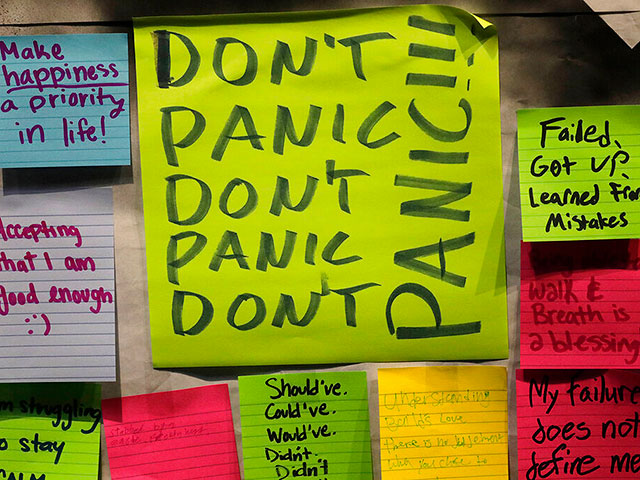 Make
happiness
a priority
in life!
DON'T
PANIC
DON'T
PANIC
DON'T
PANIC!!!
Failed,
Got UP,
Learned From
Mistakes
Accepting
that I am
good enough
:)
walk &
Breath is
a blessing
I'm struggling
to stay
CALM
Should've.
Could've.
Would've.
Didn't.
Didn't
Understanding
My failure
does not
define me